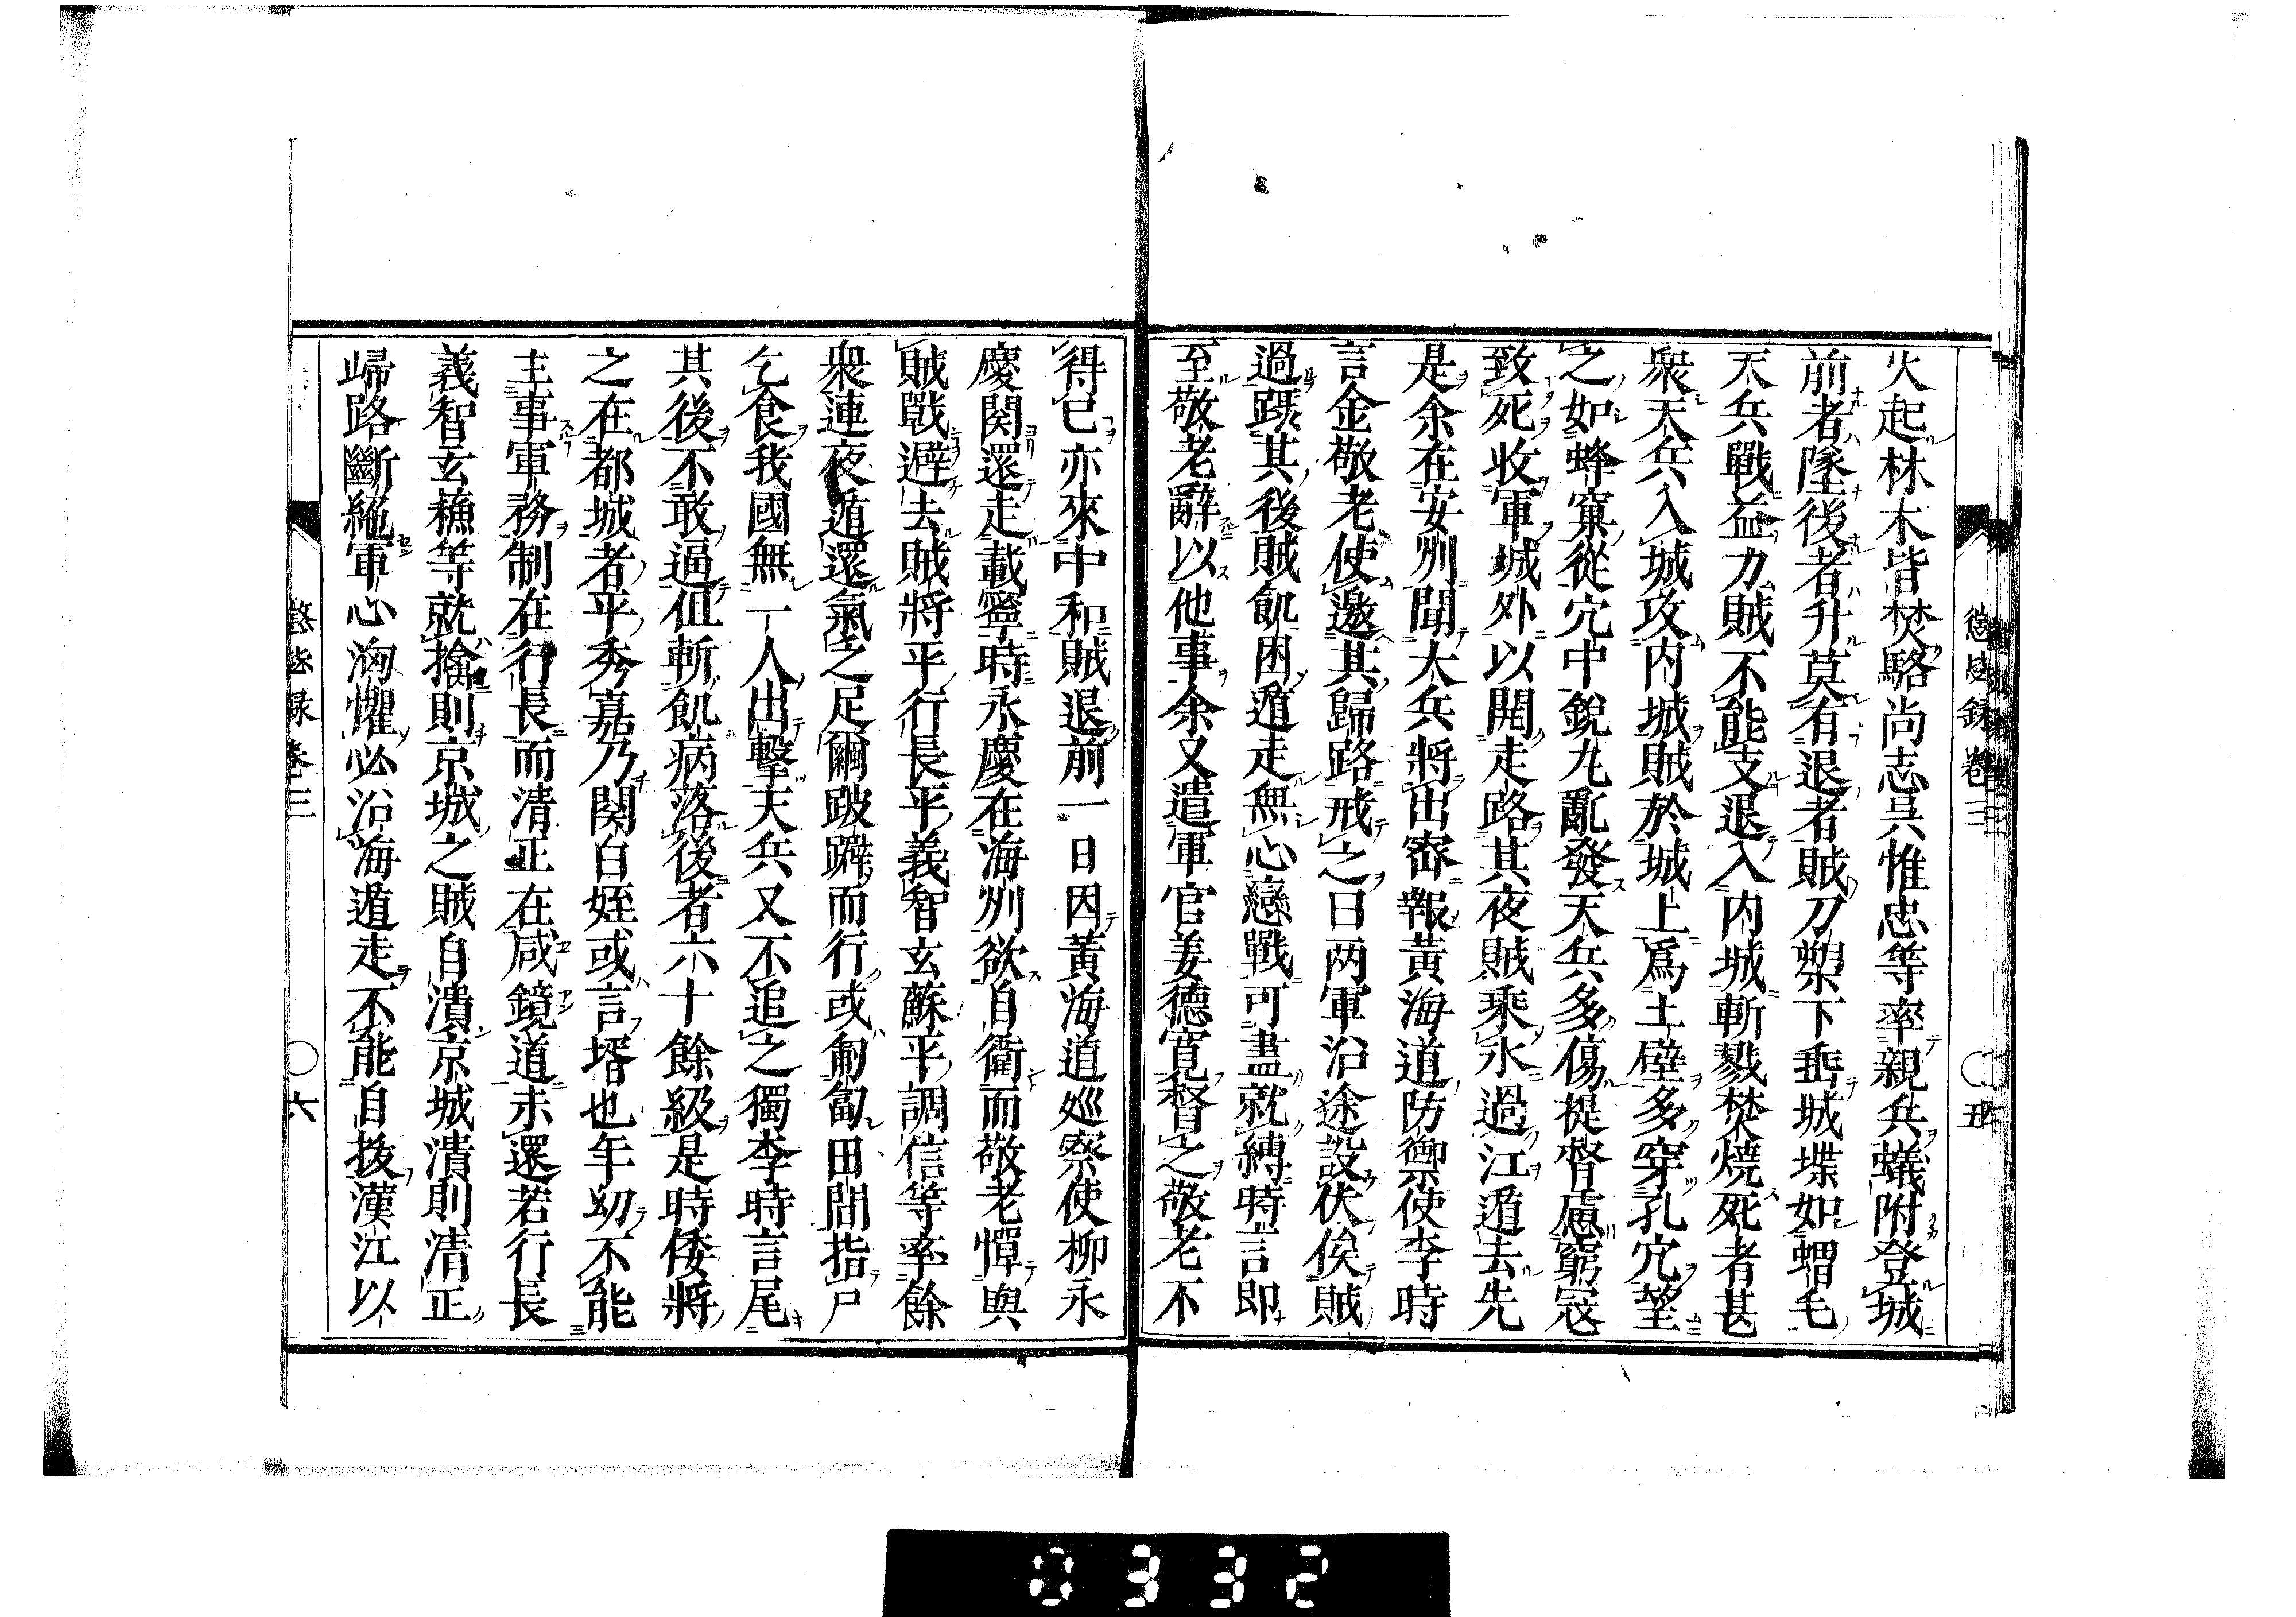 懲毖録卷三
〇五
火起林木皆焚駱尚志吳惟忠等率親兵蟻附登城
前者墜後者升莫有退者賊刀槊下垂城堞如蝟毛
天兵戰益力賊不能支退入内城斬戮焚燒死者甚
衆天兵入城攻内城賊於城上爲土壁多穿孔穴望
之如蜂窠從穴中銃丸亂發天兵多傷提督慮窮寇
致死收軍城外以開走路其夜賊乘氷過江遁去先
是余在安州聞大兵將出密報黃海道防禦使李時
言金敬老使邀其歸路戒之曰两軍沿途設伏俟賊
過蹑其後賊飢困遁走無心戀戰可盡就縛時言即
至敬老辭以他事余又遣軍官姜德寛督之敬老不
得已亦來中和賊退前一日因黃海道巡察使柳永
慶関還走載寧時永慶在海州欲自衛而敬老憚與
賊戰避去賊將平行長平義智玄蘇平調信等率餘
衆連夜遁還氣乏足繭跛躃而行或匍匐田間指口
乞食我國無一人出擊天兵又不追之獨李時言尾
其後不敢逼但斬飢病落後者六十餘級是時倭將
之在都城者平秀嘉乃関白姪或言壻也年幼不能
主事軍務制在行長而清正在咸鏡道未還若行長
義智玄蘓等就擒則京城之賊自潰京城潰則清正
歸路斷絶軍心洶懼必沿海遁走不能自拔漢江以
懲毖録卷三
〇六
0332